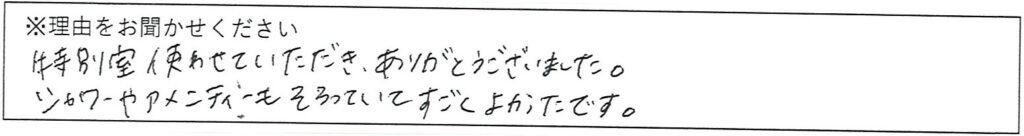 ※理由をお聞かせください
特別室使わせていただき、ありがとうございました。
シャワーやアメニティーもそろっていてすごくよかったです。